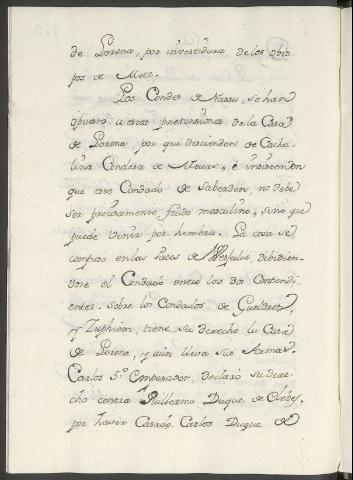 de Lorena, por investidura de los obis
pos de Metz.
Los Condes de Nasau, se han
opuesto a estas pretensiones de la Casa
de Lorena, por que descienden de Catha-
lina Condesa de Meurs, è insistienden
que este Condado de Saberden, no debe
ser precisamente feudo masculino, sino que
puede venir por hembra. La cosa se
compuso en las Paces de Wesfalia, dibidien-
dose el Condado entre los dos Contendi-
entes. Sobre los Condados de Gueldres,
y Zuphiom, tiene su derecho la Casa
de Lorena, y aùn lleva sus Armas.
Carlos 5.º Emperador, declarò su dere-
cho contra Guillermo Duque de Clebes,
por haver Casado. Carlos Duque de